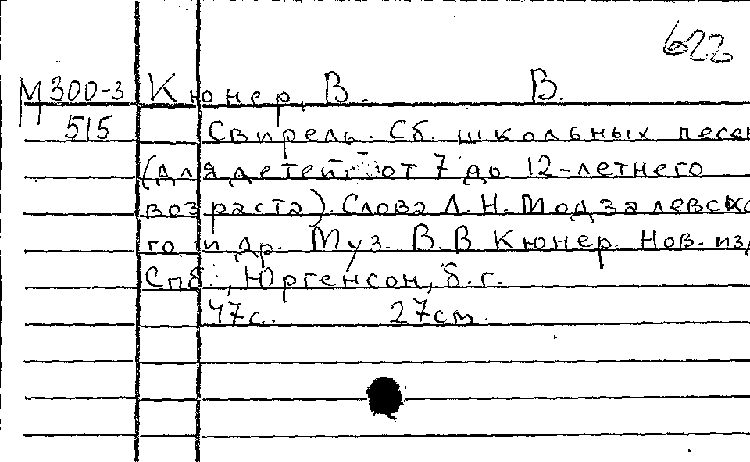 622
М300-3 Кюнер, В. В.
515 Свирель. Сб. школьных песен
(для детей от 7 до 12-летнего
возраста). Слова Л. Н. Модзалевско
го и др. Муз. В. В Кюнер. Нов. изд
Спб., Юргенсон, б. г.
47с. 27см.